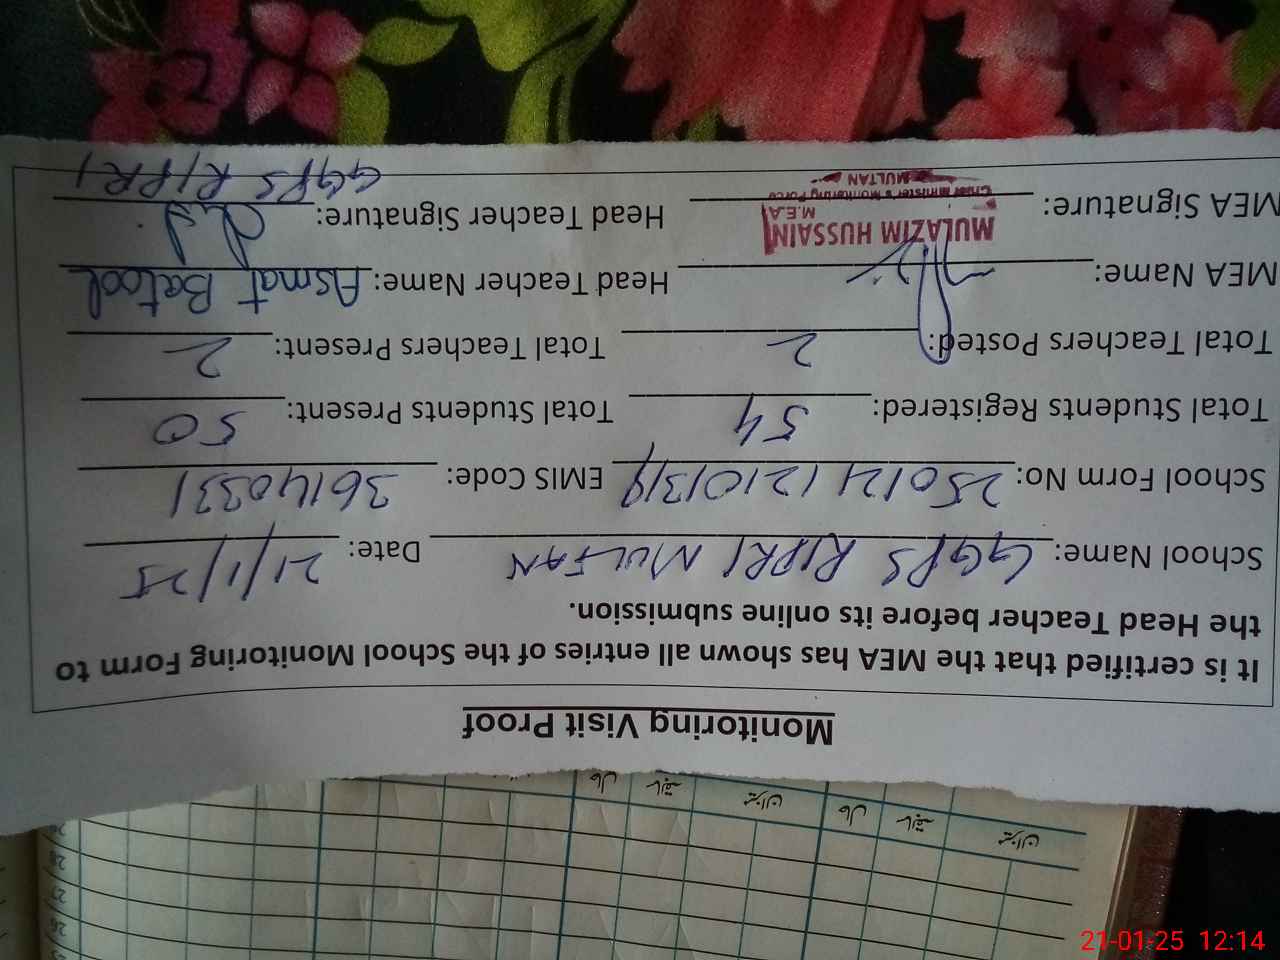 Monitoring Visit Proof
It is certified that the MEA has shown all entries of the School Monitoring Form to
the Head Teacher before its online submission.
School Name: GGPS RIPRI MULTAN Date: 21/1/25
School Form No: EMIS Code: 36140331
Total Students Registered: 54 Total Students Present: 50
Total Teachers Posted: 2 Total Teachers Present: 2
MEA Name: Head Teacher Name: Asmat Batool
MULAZIM HUSSAIN
M.E.A
Chief Minister's Monitoring Force
MULTAN
MEA Signature: Head Teacher Signature:
GGPS RIPRI
میزان سابقہ حال میزان سابقہ حال
28
27
26
21-01-25 12:14